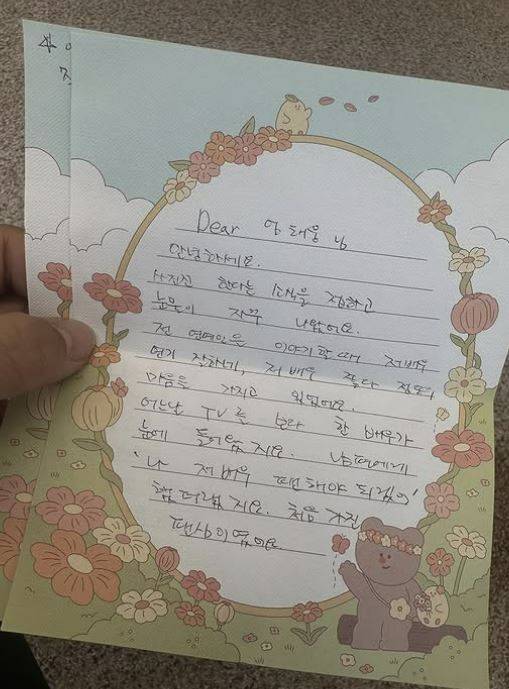 Dear 엄태웅 님
안녕하세요.
사진전 한다는 소식을 접하고
눈물이 자꾸 나왔어요.
전 연예인은 이야기할 때 저배우
연기 잘하네, 저 배우 좋다 정도의
마음을 가지고 있었어요.
어느날 TV를 보다 한 배우가
눈에 들어왔지요. 남편에게
'나 저 배우 팬 해야 되겠어'
했더랬지요. 처음 가진
팬심이였어요